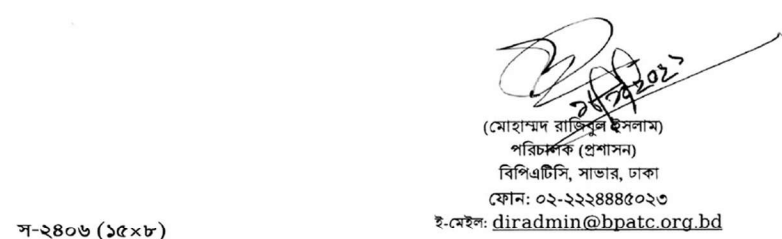 (মোহাম্মদ রাজিবুল ইসলাম)
পরিচালক (প্রশাসন)
বিপিএটিসি, সাভার, ঢাকা
ফোন: ০২-২২২৪৪৪৫০২৩
ই-মেইল: diradmin@bpatc.org.bd
স-২৪০৬ (১৫×৮)